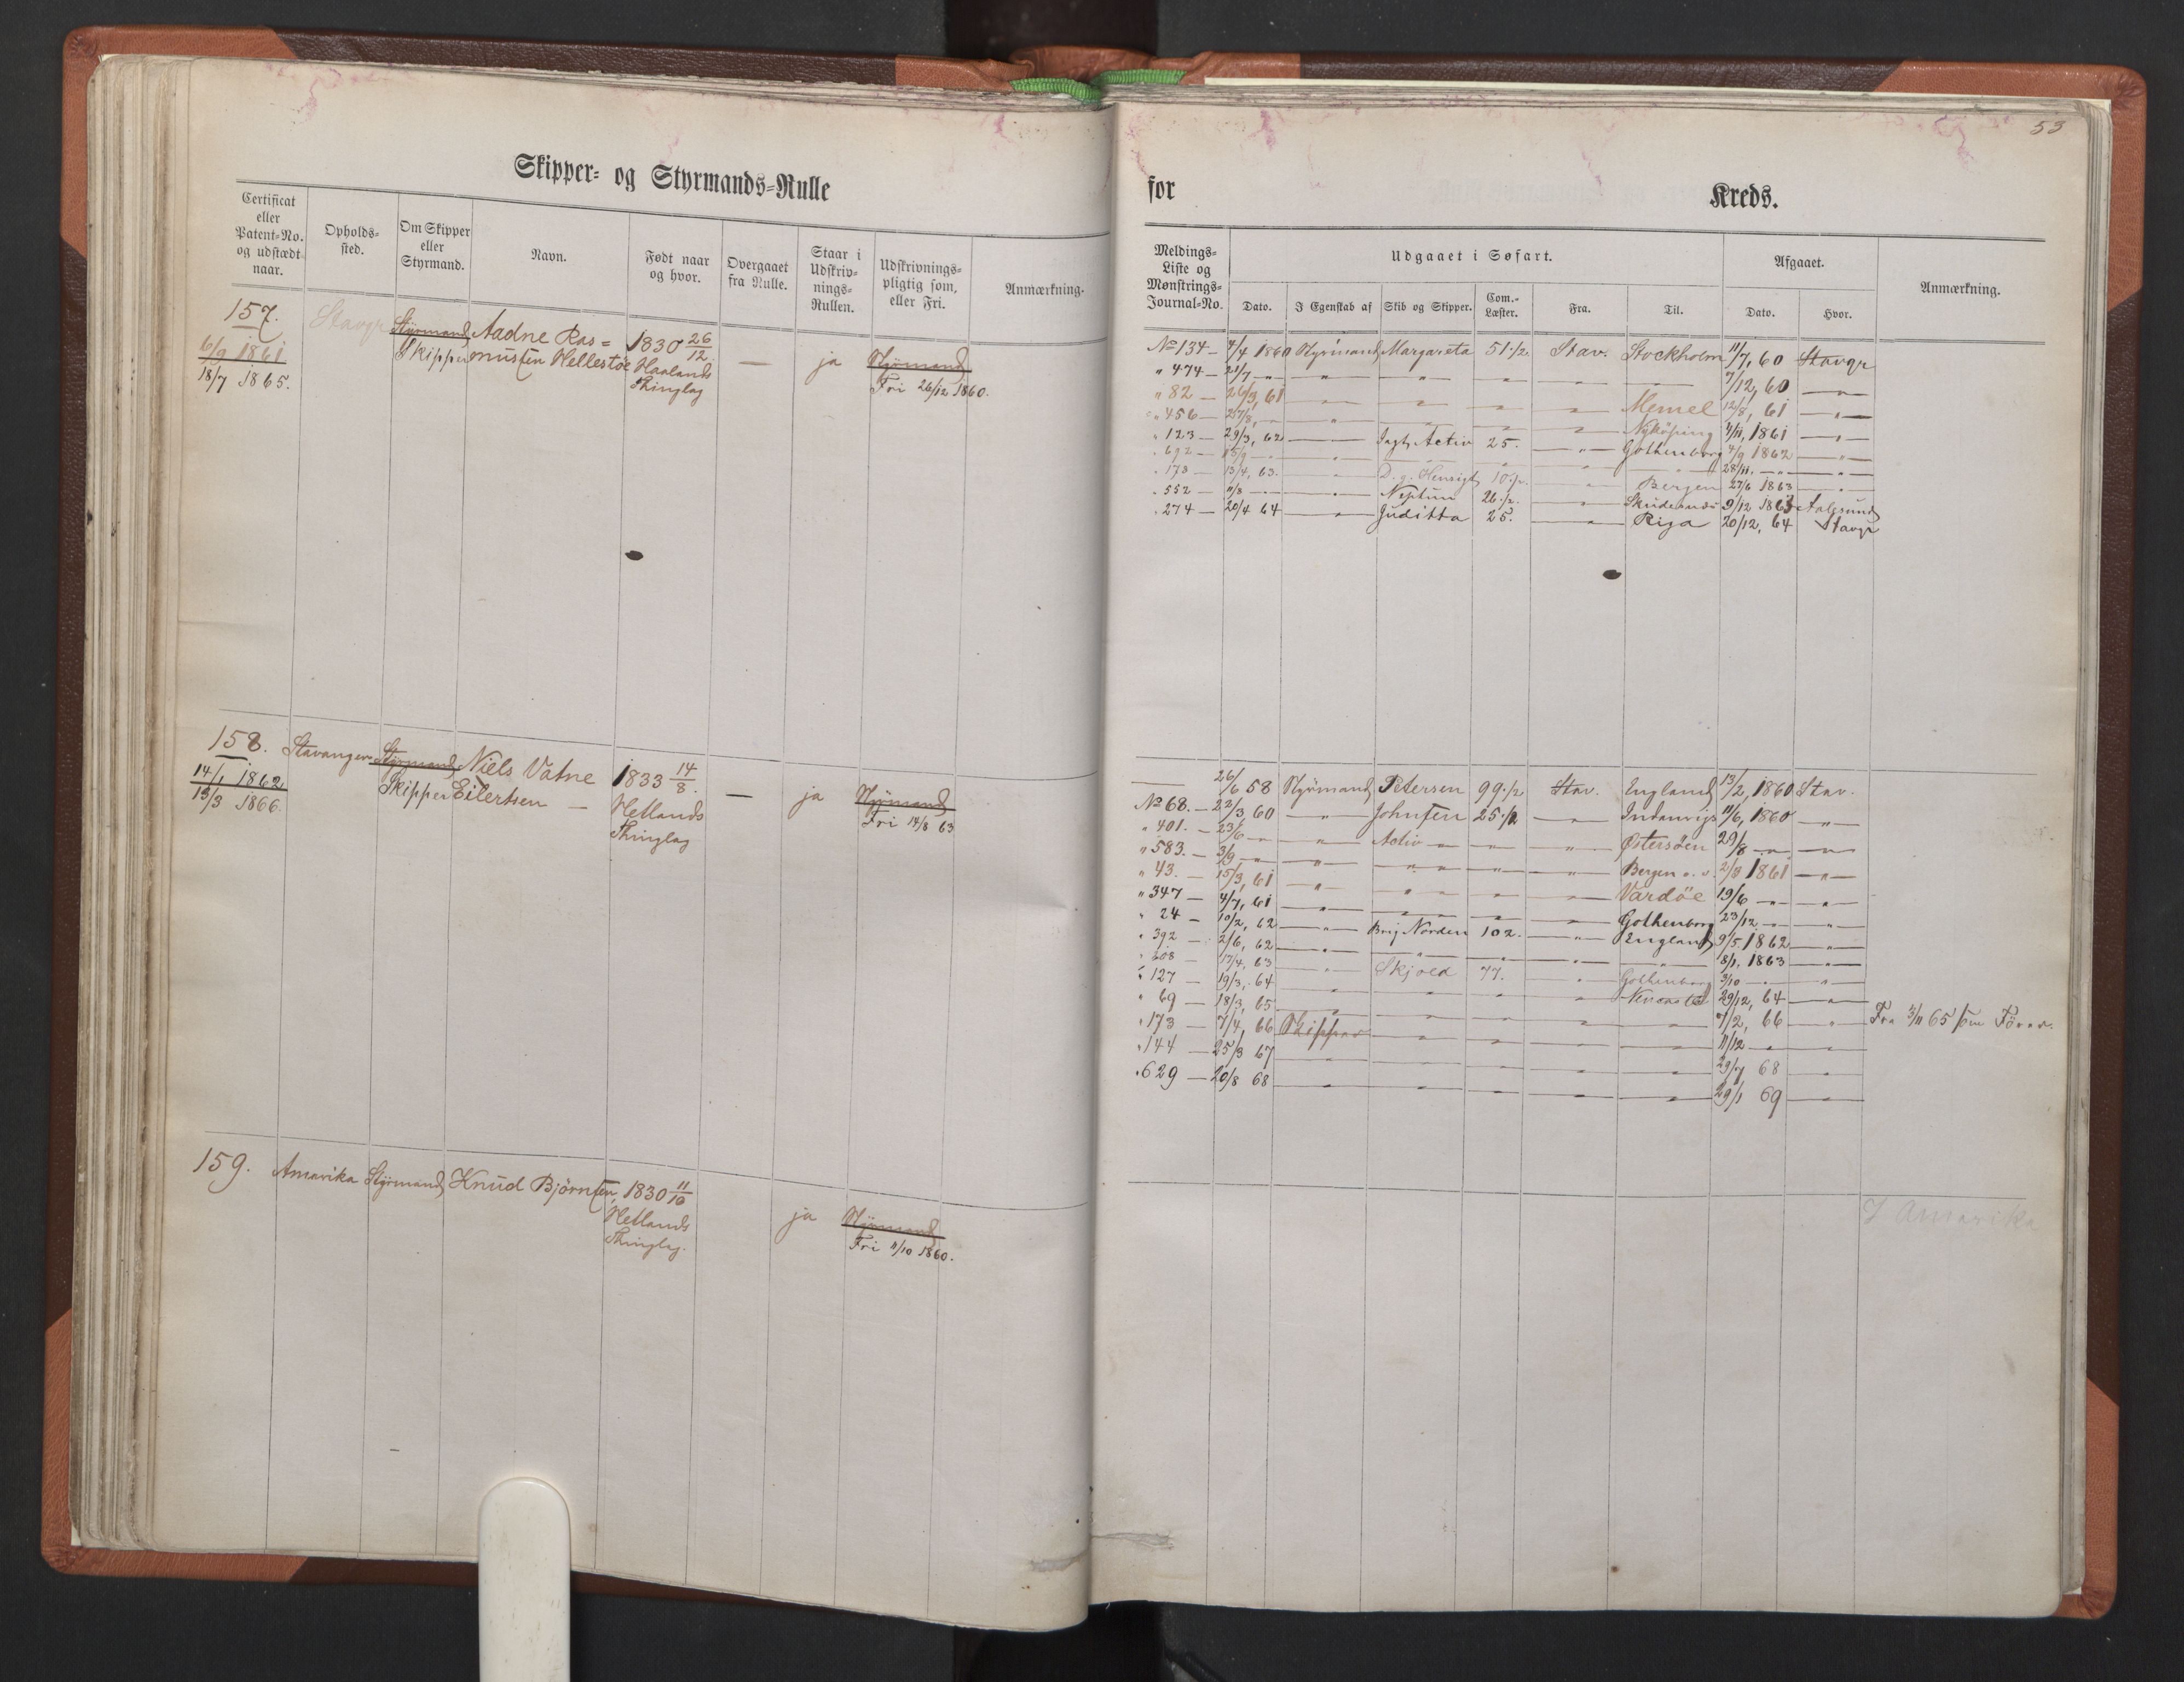 53
Skipper- og Styrmands-Rulle
for
Kreds.
Certificat eller Patent-No. og udstædt naar.
Opholds-sted.
Om Skipper eller Styrmand.
Navn.
Født naar og hvor.
Overgaaet fra Rulle.
Staar i Udskriv-nings-Rullen.
Udskrivnings-pligtig som, eller Fri.
Anmærkning.
Meldings-Liste og Mønstrings-Journal-No.
Udgaaet i Søfart.
Afgaaet.
Anmærkning.
Dato.
I Egenskab af
Skib og Skipper.
Com.-Læster.
Fra.
Til.
Dato.
Hvor.
157. Stavgr Styrmand Aadne Ras= 1830 26/12. — ja Styrmand
6/9 1861 Skipper musen Hellestøe Haalands Fri 26/12 1860.
18/7 1865. Thinglag
No 134 — 4/4 1860 Styrmand Margareta 51 1/2. Stav. Stockholm 11/7, 60 Stavgr
" 474 — 21/7 — " — " — " — " — " 7/12, 60 — " —
" 82 — 26/3, 61 — " — " — " — " Memel 12/8, 61 — " —
" 456 — 27/8, — " — " — " — " Nykøping 4/11, 1861 — " —
" 123 — 29/3, 62 — " — Jagt Activ 25. — " — Gothenborg 4/9 1862 — " —
" 692 — 15/9 — " — " — " — " — " 28/11. — " — " —
" 173 — 13/4, 63. — " — D. g. Hensigt 10 1/2. — " Bergen 27/6 1863 — " —
" 552 — 11/8 — " — " — Neptun 26 1/2. — " 9/12 1863 Aalesund
" 274 — 20/4 64 — " — Juditta 25. — " — Riga 20/12, 64 Stavgr
158. Stavanger Styrmand Niels Vatne 1833 14/8. — ja Styrmand
14/1 1862 Skipper Eilertsen — Hetlands Fri 14/8 63
13/3 1866. Thinglag
— 26/6 58 Styrmand Petersen 99 1/2 Stav. England 13/2, 1860 Stav.
No 68. — 22/3, 60 — " — Johnsen 25 1/2 — " — Indenrigs 11/6, 1860 — " —
" 401. — 23/6 — " — " Activ — " — " — " Østersöen 29/8 — " — " —
" 583. — 3/9 — " — " — " — " — " Bergen 2/3 1861 — " —
" 43. — 15/3, 61 — " — " — " — " — Vardöe 19/6 — " — " —
" 347 — 4/7, 61 — " — " — " — " — Gothenborg 23/12 — " — " —
" 24 — 10/2, 62 — " — Brig Norden 102. — " — England 9/5. 1862 — " —
" 392 — 2/6, 62 — " — " — " — " — " 8/1, 1863 — " —
" 608 — 17/4, 63 — " — Skjold 77. — " Gothenborg 3/10 — " — " —
" 127 — 19/3, 64 — " — " — " — " Newcastel 29/12, 64 — " —
" 69 — 18/3, 65 — " — " — " — " — " 7/2, 66 — " — Fra 3/11 65 som Förer.
" 173 — 7/4, 66 Skipper — " — " — " — " 11/12 — " — " —
" 144 — 25/3 67 — " — " — " — " — " 29/7 68 — " —
" 629 — 20/8 68 — " — " — " — " — " 29/1 69 — " —
159. Amerika Styrmand Knud Björnsen, 1830 11/10 ja Styrmand
Hetlands Fri 11/10 1860.
Thinglag.
I Amerika